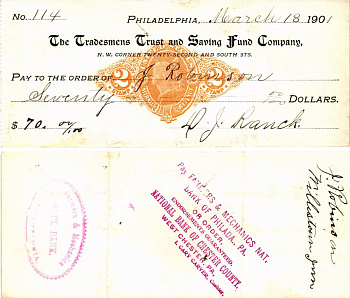 No. 114 PHILADELPHIA, March 18 1901
The Tradesmens Trust and Saving Fund Company,
N. W. CORNER TWENTY-SECOND AND SOUTH STS.
PAY TO THE ORDER OF J Robinson
Seventy DOLLARS.
$ 70. 00/100 D J. Ranck.
2 2
Pay FARMERS & MECHANICS NAT.
BANK OF PHILADA, PA.
OR ORDER,
ENDORSEMENTS GUARANTEED.
NATIONAL BANK OF CHESTER COUNTY,
WEST CHESTER, PA.
I. CARY CARVER, Cashier
J Robinson
Willistown Inn
Farmers & Mechanics